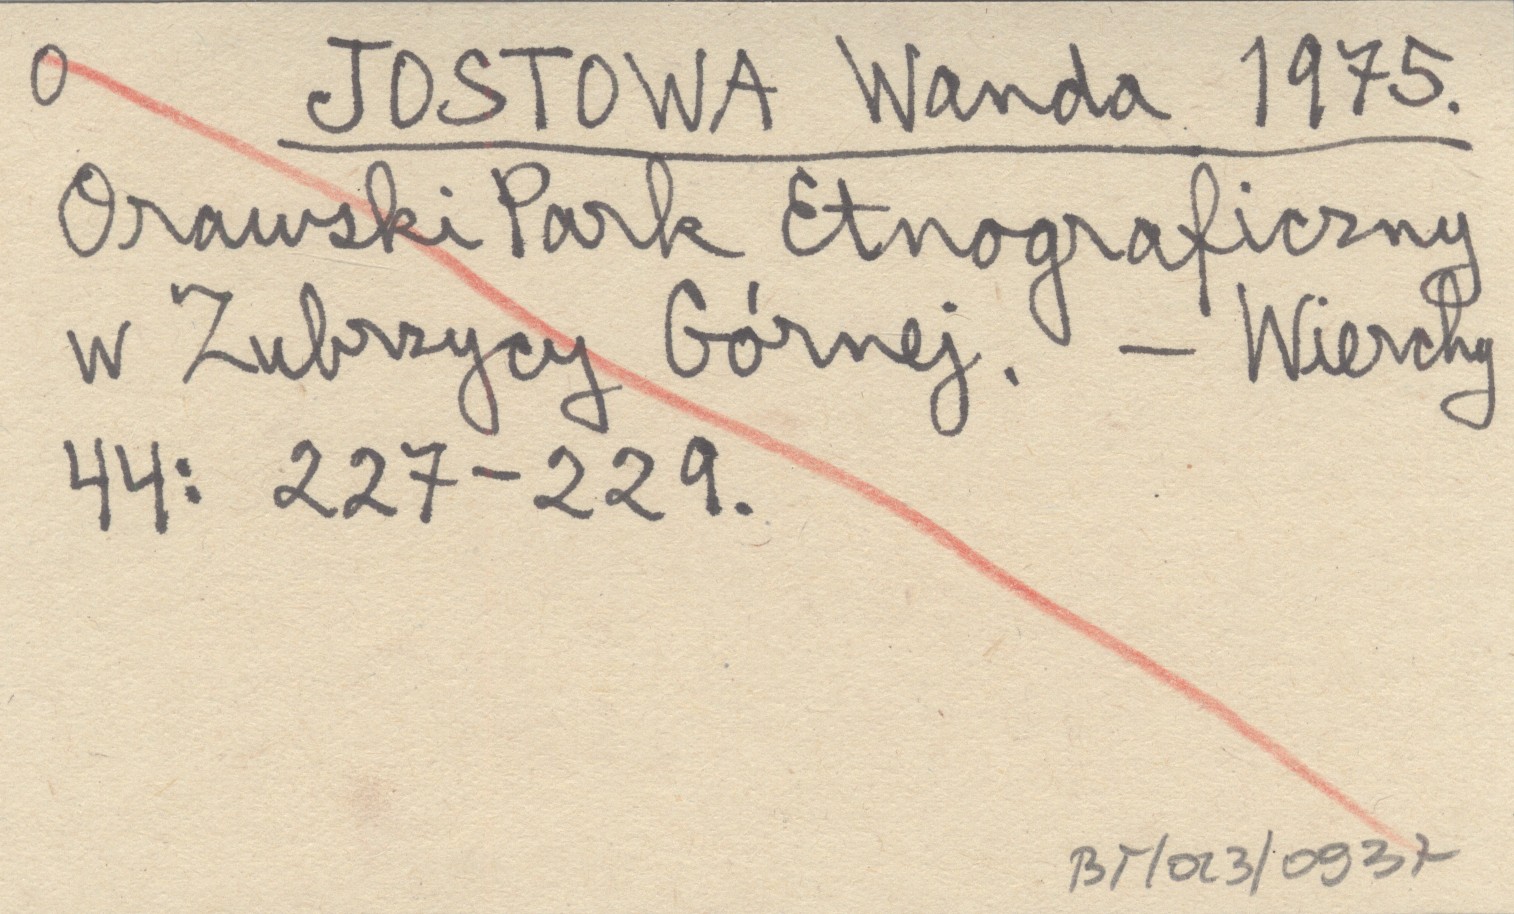 O JOSTOWA Wanda 1975.
Orawski Park Etnograficzny
w Zubrzycy Górnej. – Wierchy
44: 227–229.